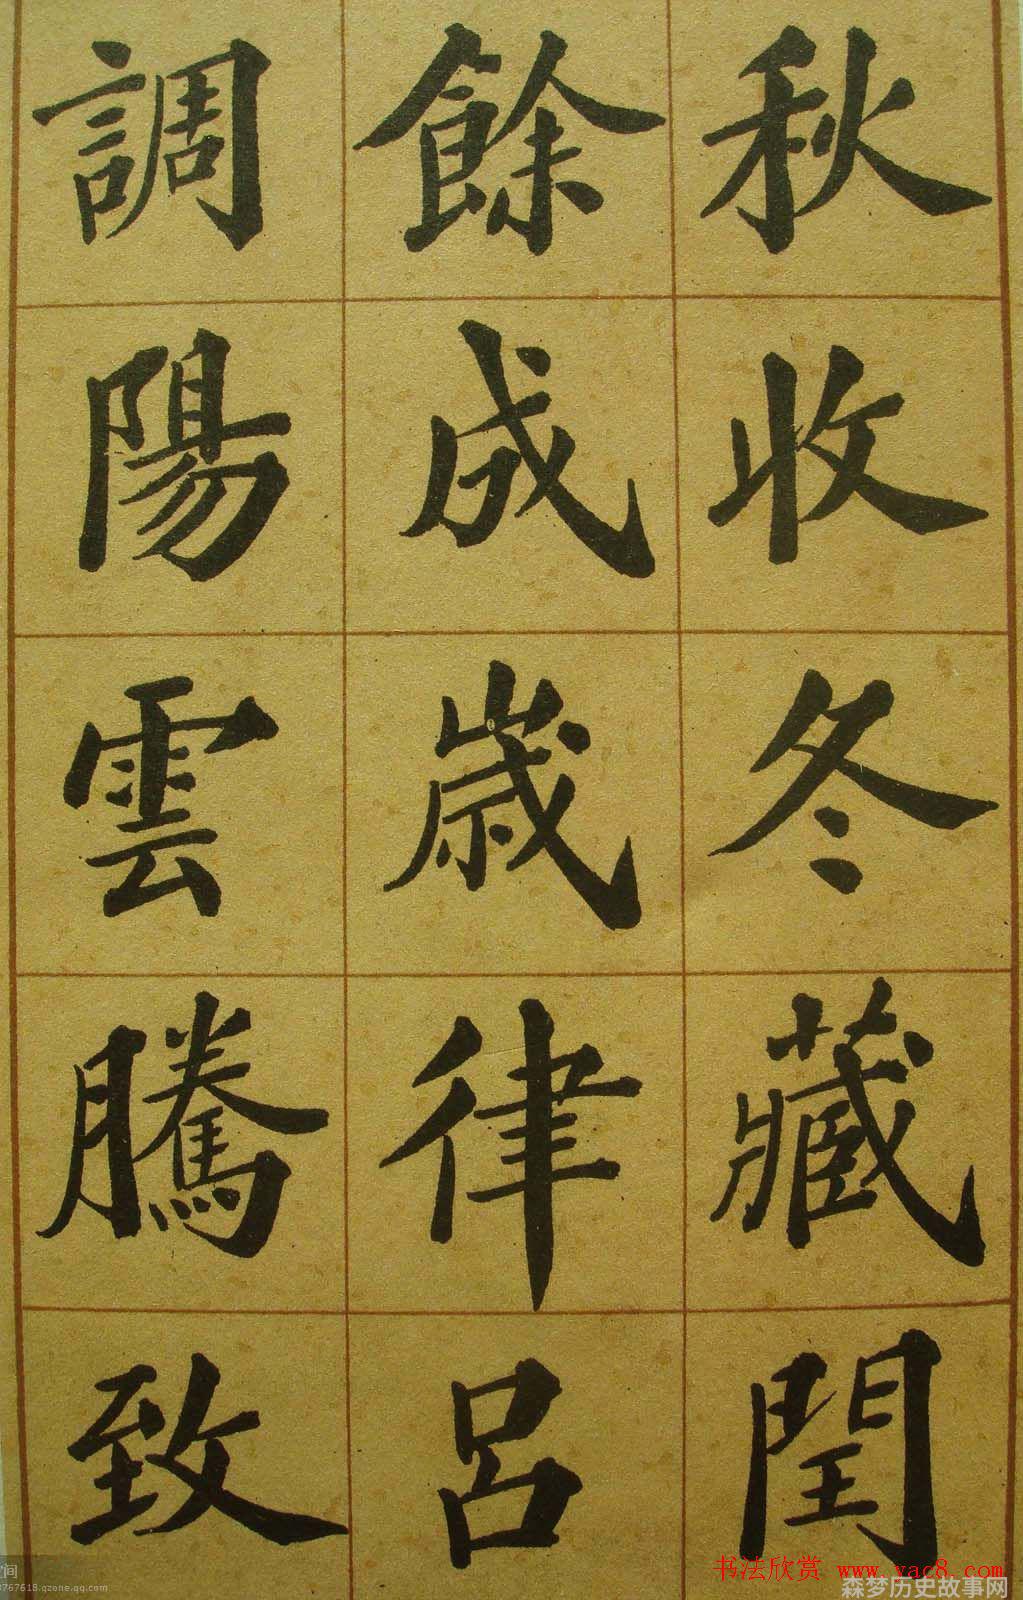 秋收冬藏閏
餘成歳律呂
調陽雲騰致
书法欣赏 www.yac8.com
森梦历史故事网
空间
3767618.qzone.qq.com